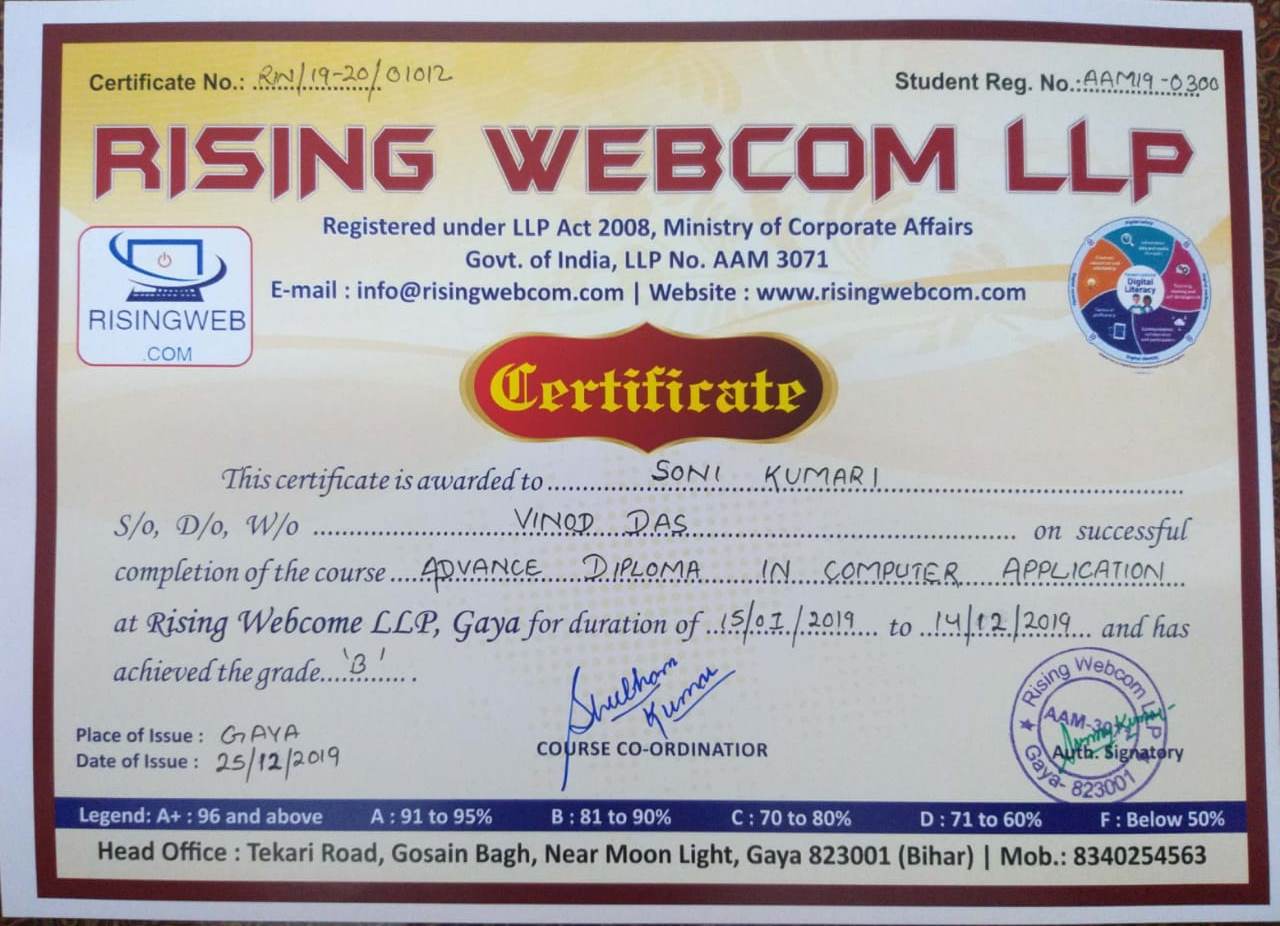 Certificate No.: RW/19-20/01012
Student Reg. No.: AAM19-0300
RISING WEBCOM LLP
Registered under LLP Act 2008, Ministry of Corporate Affairs
Govt. of India, LLP No. AAM 3071
E-mail : info@risingwebcom.com | Website : www.risingwebcom.com
RISINGWEB
.COM
Digital
Literacy
Certificate
This certificate is awarded to SONI KUMARI
S/o, D/o, W/o VINOD DAS on successful
completion of the course ADVANCE DIPLOMA IN COMPUTER APPLICATION
at Rising Webcome LLP, Gaya for duration of 15/01/2019 to 14/12/2019 and has
achieved the grade 'B'
Shubham
Kumar
COURSE CO-ORDINATIOR
Place of Issue : GAYA
Date of Issue : 25/12/2019
Rising Webcom LLP
Gaya- 823001
Auth. Signatory
Legend: A+ : 96 and above A : 91 to 95% B : 81 to 90% C : 70 to 80% D : 71 to 60% F : Below 50%
Head Office : Tekari Road, Gosain Bagh, Near Moon Light, Gaya 823001 (Bihar) | Mob.: 8340254563